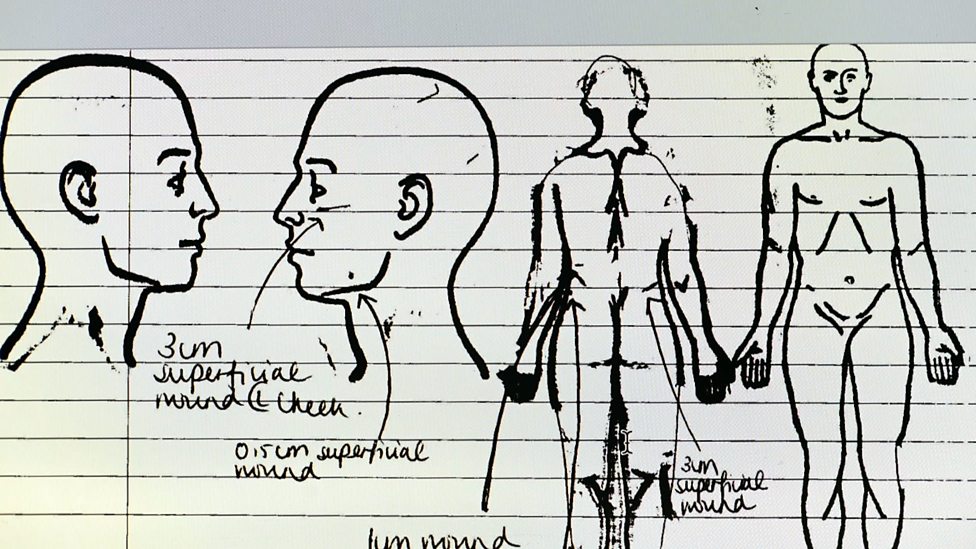 3cm
superficial
wound (L cheek.
0.5cm superficial
wound
3cm
superficial
wound
1cm wound